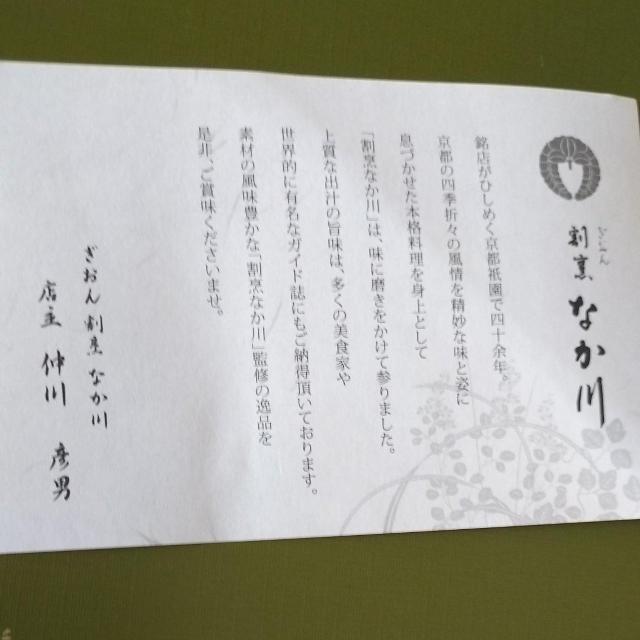 ぎおん
割烹 なか川
銘店がひしめく京都祇園で四十余年。
京都の四季折々の風情を精妙な味と姿に
息づかせた本格料理を身上として
「割烹なか川」は、味に磨きをかけて参りました。
上質な出汁の旨味は、多くの美食家や
世界的に有名なガイド誌にもご納得頂いております。
素材の風味豊かな「割烹なか川」監修の逸品を
是非、ご賞味くださいませ。
ぎおん 割烹 なか川
店主 仲川 彦男